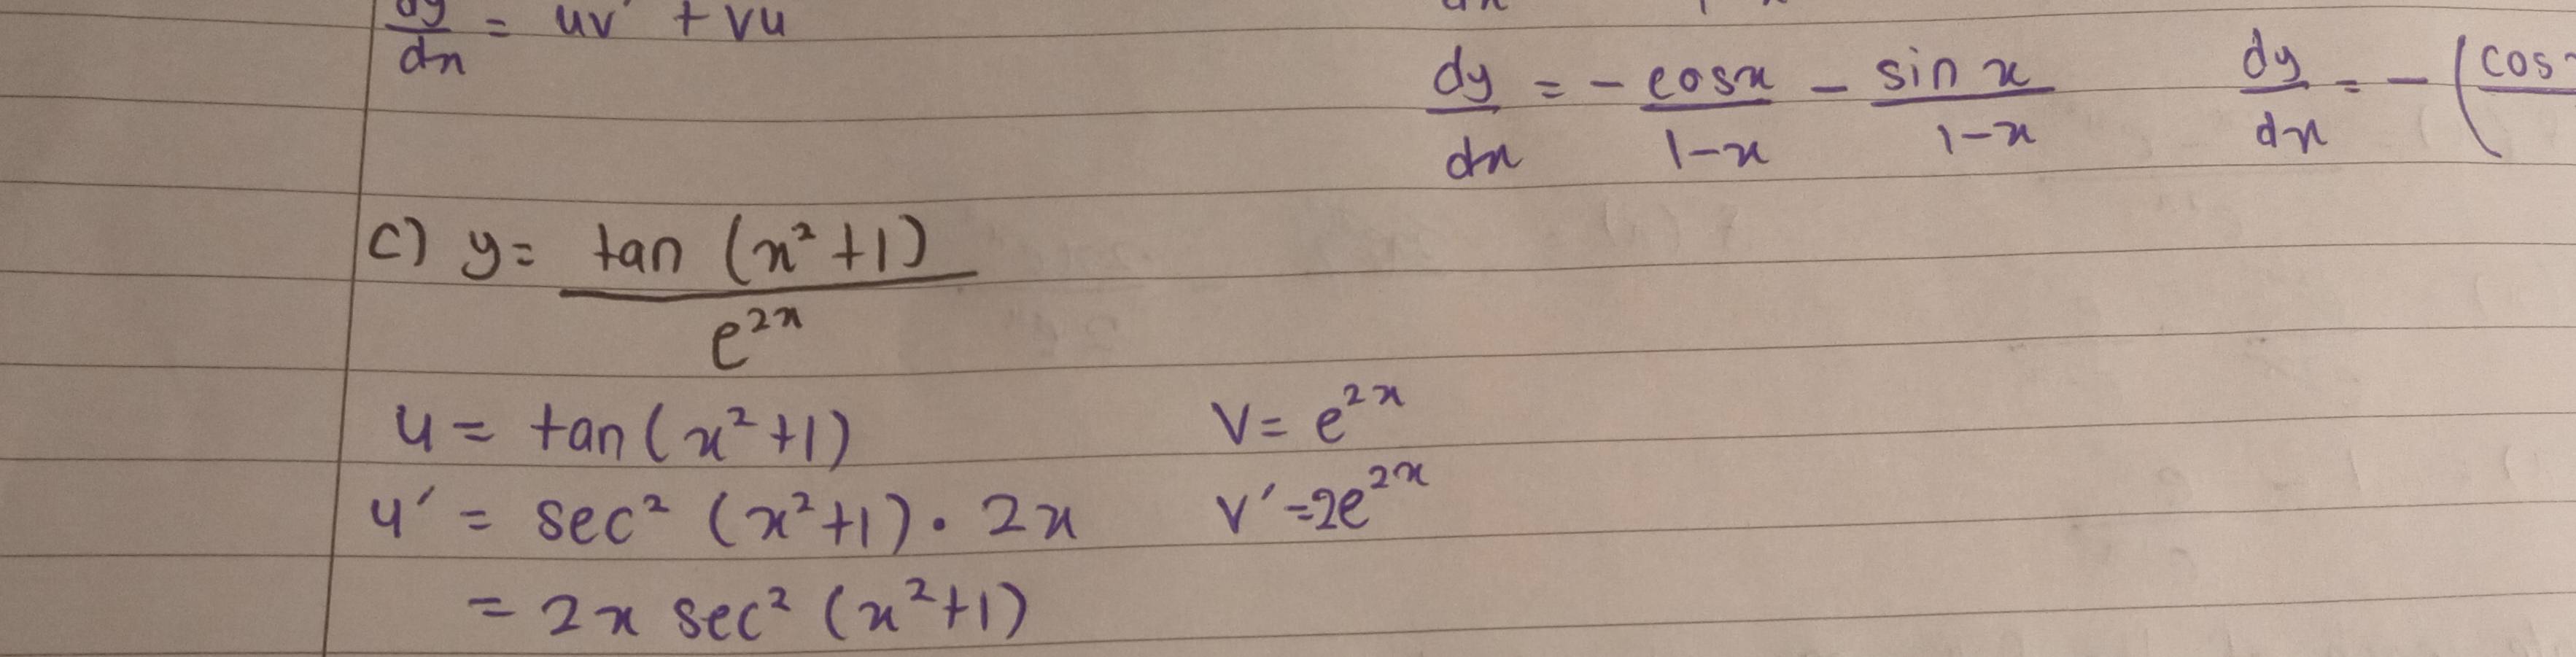 dy/dx = uv' + vu
dy/dx = - cosx/1-x - sin x/1-x dy/dx = - (cos
c) y = tan (x² +1)/e²ˣ
u = tan(x² +1) v = e²ˣ
u' = sec² (x²+1) · 2x v' = 2e²ˣ
= 2x sec² (x²+1)